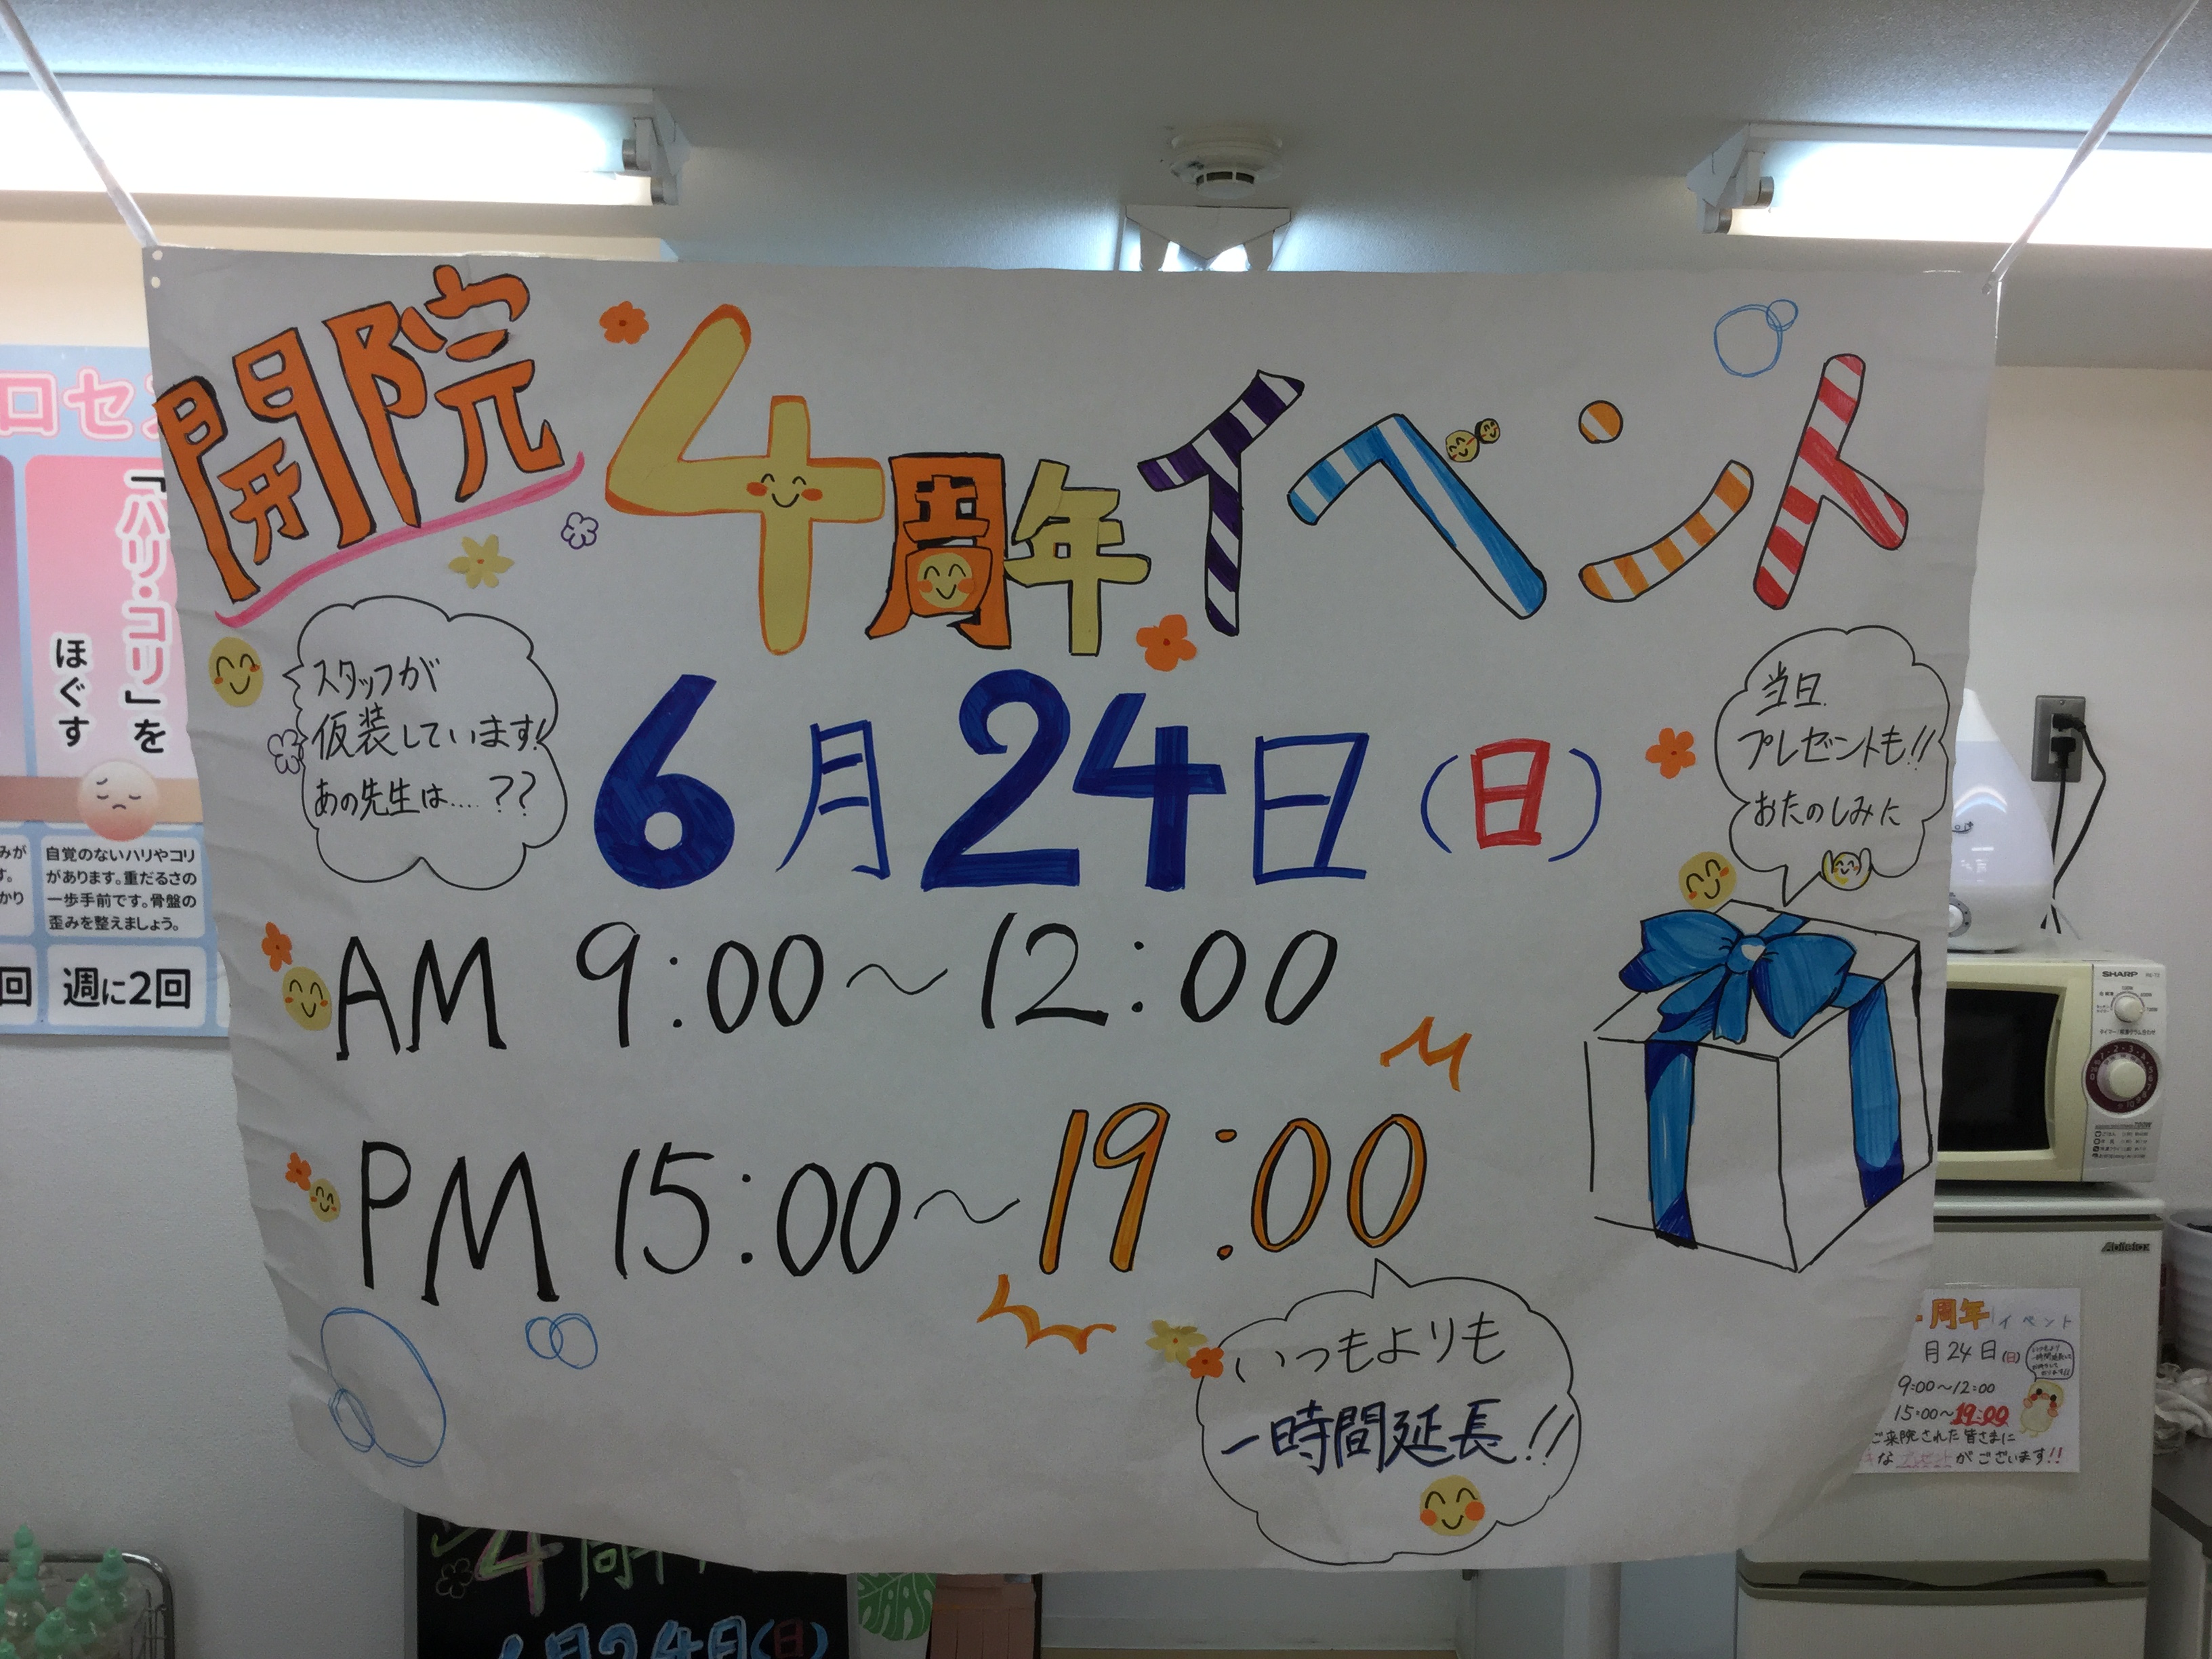 開院4周年イベント
スタッフが
仮装しています!
あの先生は....??
6月24日(日)
当日
プレゼントも!!
おたのしみに
AM 9:00〜12:00
PM 15:00〜19:00
いつもよりも
一時間延長!!
ロセ
「ハリ・コリ」を
ほぐす
自覚のないハリやコリ
があります。重だるさの
一歩手前です。骨盤の
歪みを整えましょう。
回
週に2回
SHARP
周年イベント
月24日(日)
9:00〜12:00
15:00〜19:00
ご来院された皆さまに
なプレゼントがございます!!
4周年
6月24日(日)